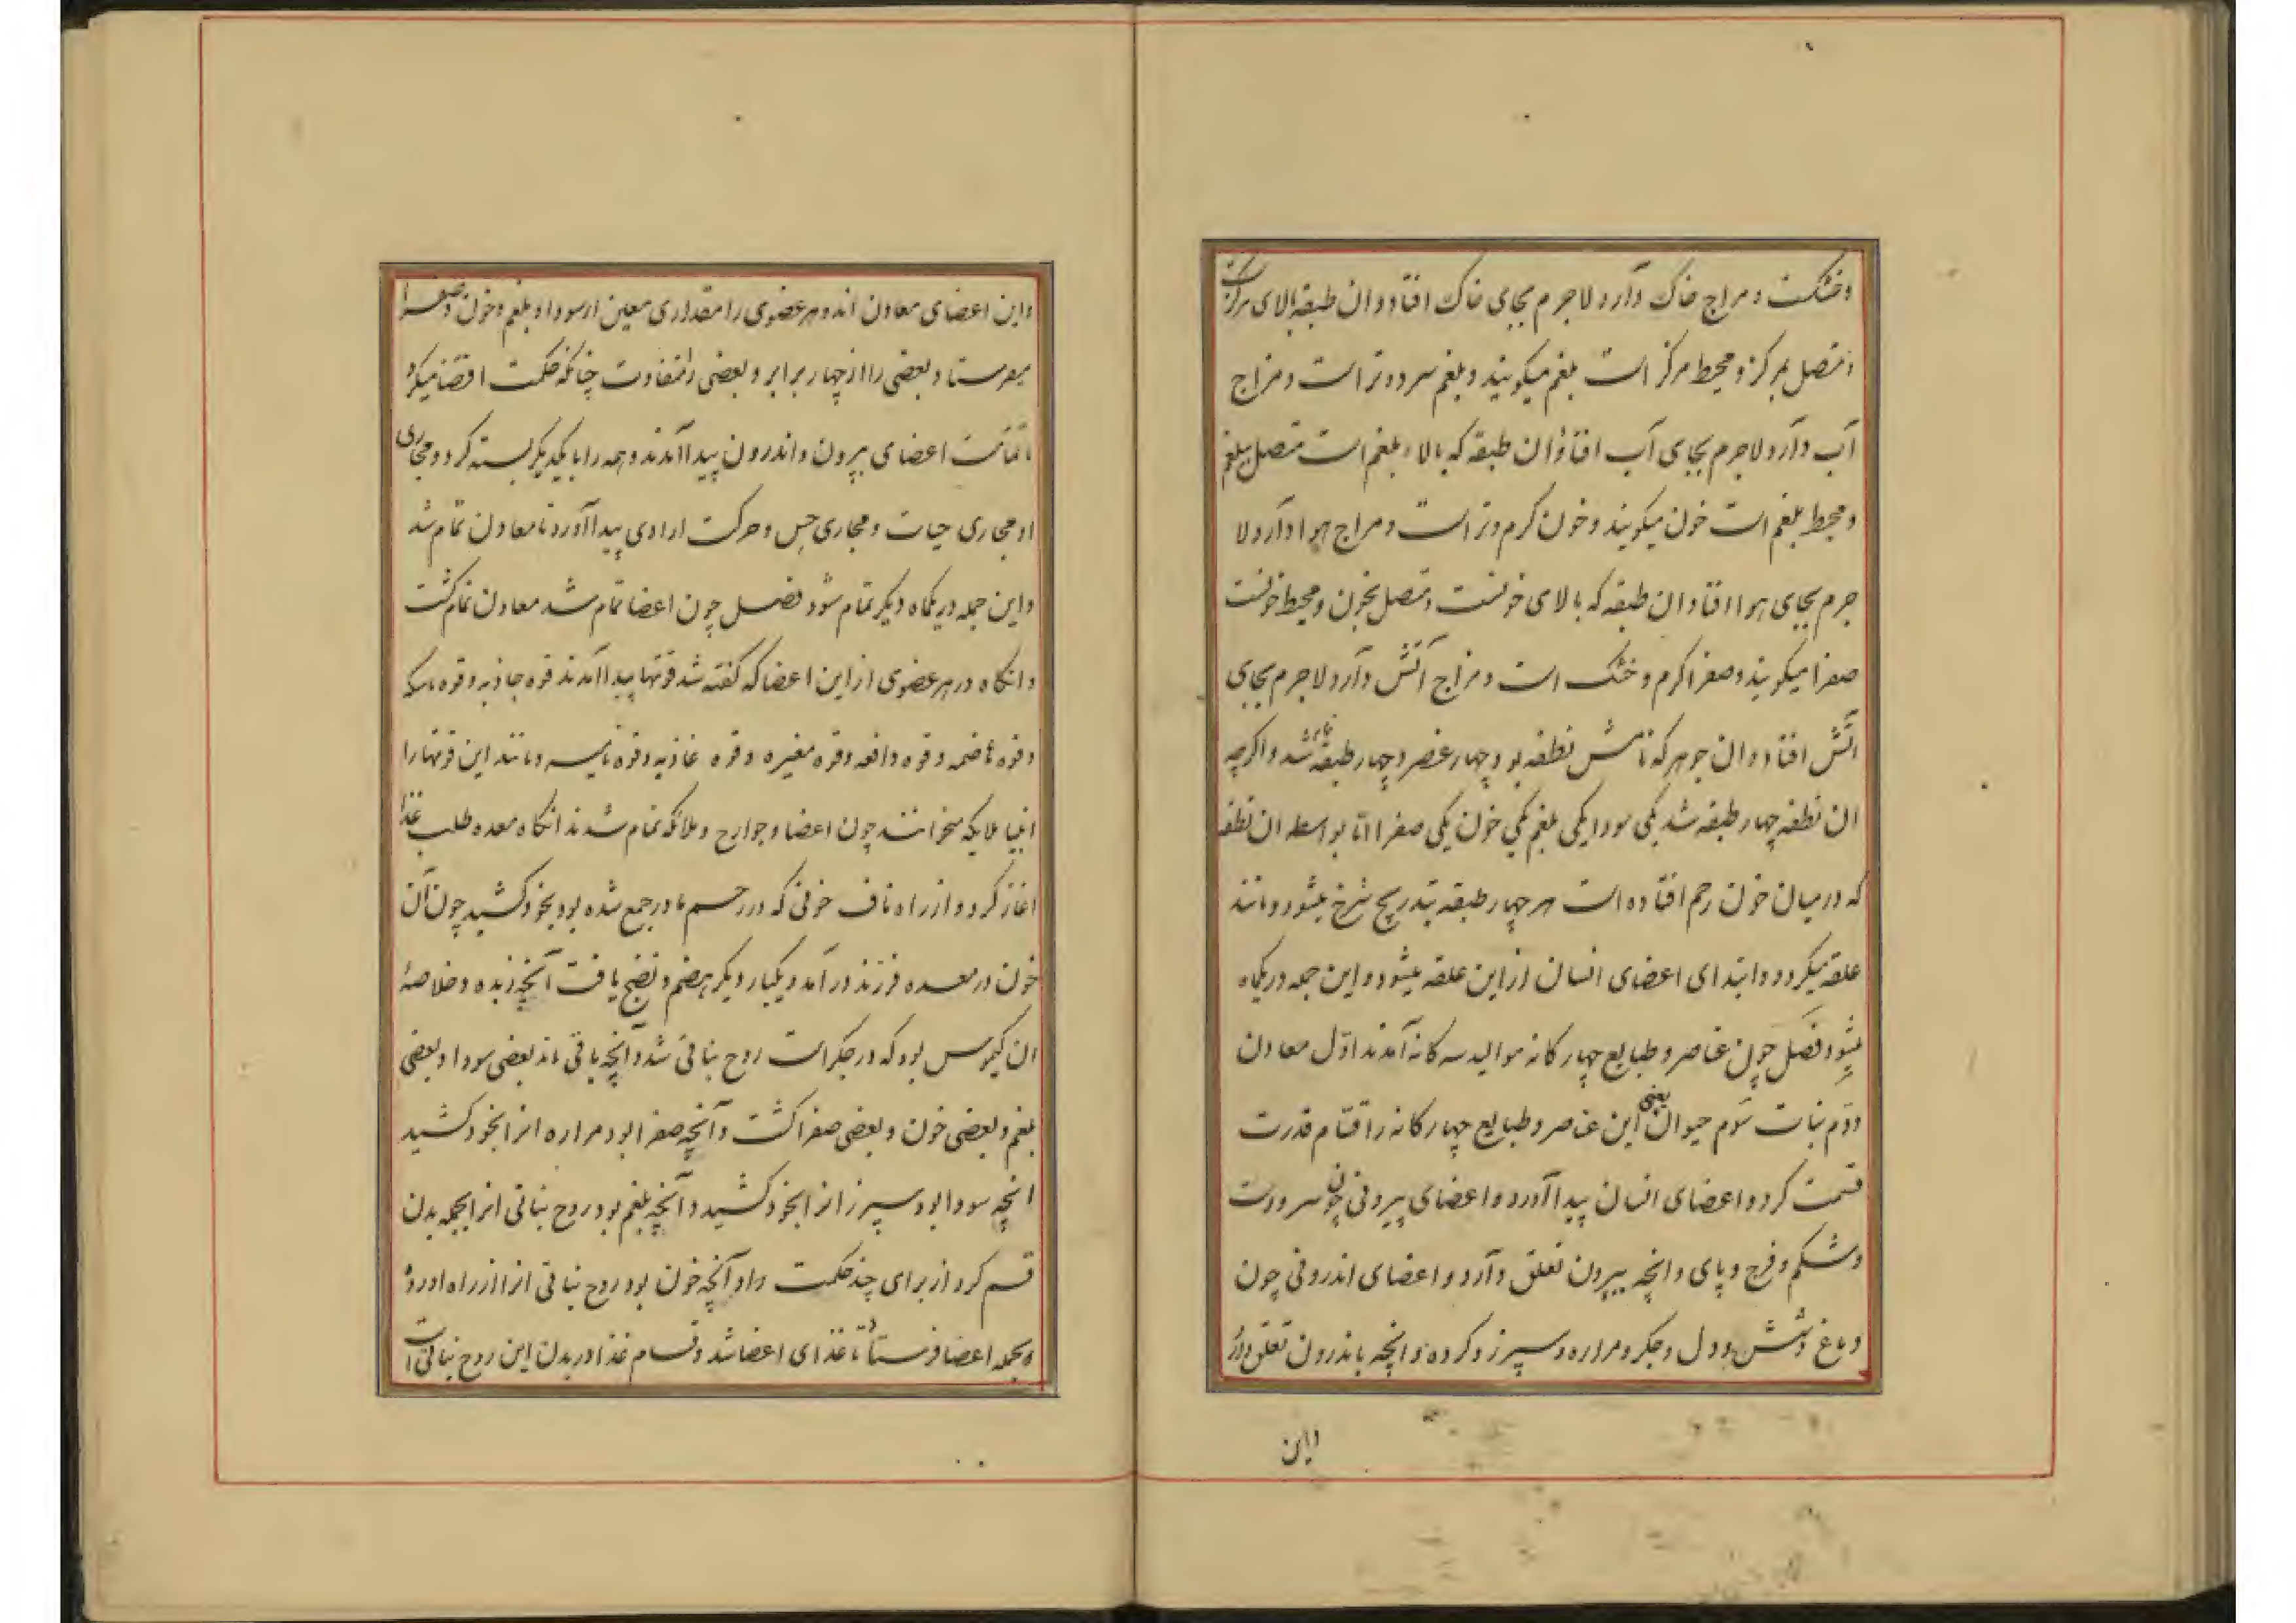 وخشکست ومزاج خاک دارد لاجرم بجای خاک افتاد وان طبقه بالای مرکزست
ومتصل بمرکز ومحیط مرکز است بلغم میکویند وبلغم سرد وتر است ومزاج
آب دارد لاجرم بجای آب افتاد وان طبقه که بالاء بلغم است متصل ببلغم
ومحیط بلغم است خون میکویند وخون کرم وتر است ومزاج هوا دارد لا
جرم بجای هوا افتاد وان طبقه که بالای خونست ومتصل بخون ومحیط خونست
صفرا میکویند وصفرا کرم وخشک است ومزاج آتش دارد لاجرم بجای
آتش افتاد وان جوهر که نامش نطفه بود چهار عنصر وچهار طبقه شد واکرچه
ان نطفه چهار طبقه شد یکی سودا یکی بلغم یکی خون یکی صفرا اما بواسطه ان نطفه
که در میان خون رحم افتاده است هر چهار طبقه بتدریج سرخ میشود ومانند
علقه میکردد وابتدای اعضای انسان از این علقه میشود واین جمله در یکماه
میشود فصل چون عناصر وطبایع چهار کانه موالید سه کانه آمدند اول معادن
دوم نبات سوم حیوان یعنی این عناصر وطبایع چهار کانه را قسام قدرت
قسمت کرد واعضای انسان پیدا آورد واعضای بیرونی چون سر ودست
وشکم وفرج وپای وانچه ببیرون تعلق دارد واعضای اندرونی چون
دماغ وشش ودل وجکر ومراره وسپرز وکرده وانچه باندرون تعلق دارد
واین
واین اعضای معادن اند وهر عضوی را مقداری معین از سودا وبلغم وخون وصفرا
میفرستاد وبعضی را از چهار برابر وبعضی را متفاوت چنانکه حکمت اقتضا میکرد
تا تمامت اعضای بیرون واندرون پیدا آمدند وهمه را با یکدیکر بسته کرد ومجاری
او مجاری حیات ومجاری حس وحرکت ارادی پیدا آورد تا معادن تمام شد
واین جمله در یکماه دیکر تمام شود فصل چون اعضا تمام شد معادن تمام کشت
وانکاه در هر عضوی از این اعضا که کفته شد قوتها پیدا آمدند قوه جاذبه وقوه ماسکه
وقوه هاضمه وقوه دافعه وقوه مغیره وقوه غاذیه وقوه نامیه ومانند این قوتها را
انبیا ملایکه میخوانند چون اعضا وجوارح وملائکه تمام شدند انکاه معده طلب غذا
اغاز کرد واز راه ناف خونی که در رحم مادر جمع شده بود بخود کشید چون آن
خون در معده فرزند در آمد ویکبار دیکر هضم ونضج یافت آنچه زبده وخلاصهٔ
ان کیموس بود که در جکر است روح نباتی شد وآنچه باقی ماند بعضی سودا وبعضی
بلغم وبعضی خون وبعضی صفرا کشت وآنچه صفرا بود مراره انرا بخود کشید
انچه سودا بود سپرز انرا بخود کشید وآنچه بلغم بود روح نباتی انرا بجمله بدن
قسم کرد از برای چند حکمت را وآنچه خون بود روح نباتی انرا از راه اورده
بجمله اعضا فرستاد تا غذای اعضا شد وقسام غذا در بدن این روح نباتی است